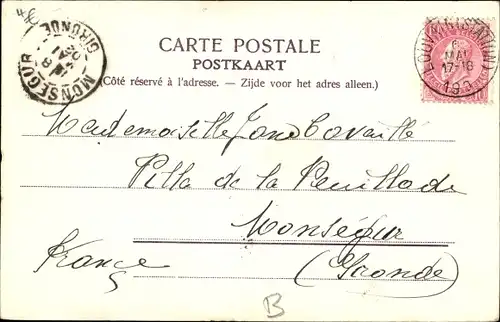 CARTE POSTALE
POSTKAART
(Côté réservé à l'adresse. – Zijde voor het adres alleen.)
MONSÉGUR
GIRONDE
8
MAI
02
6
MAI
17-18
190
Mademoiselle
Villa de la Feuillade
Monségur
France (Gironde)
B